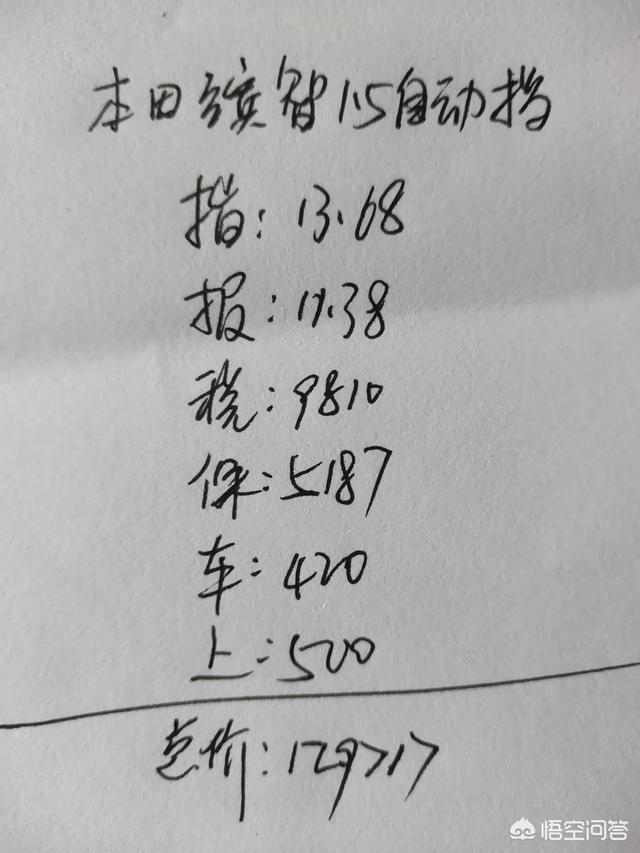 本田缤智1.5自动挡
指：13.68
报：11.38
税：9810
保：5187
车：420
上：500
总价：129717
悟空问答